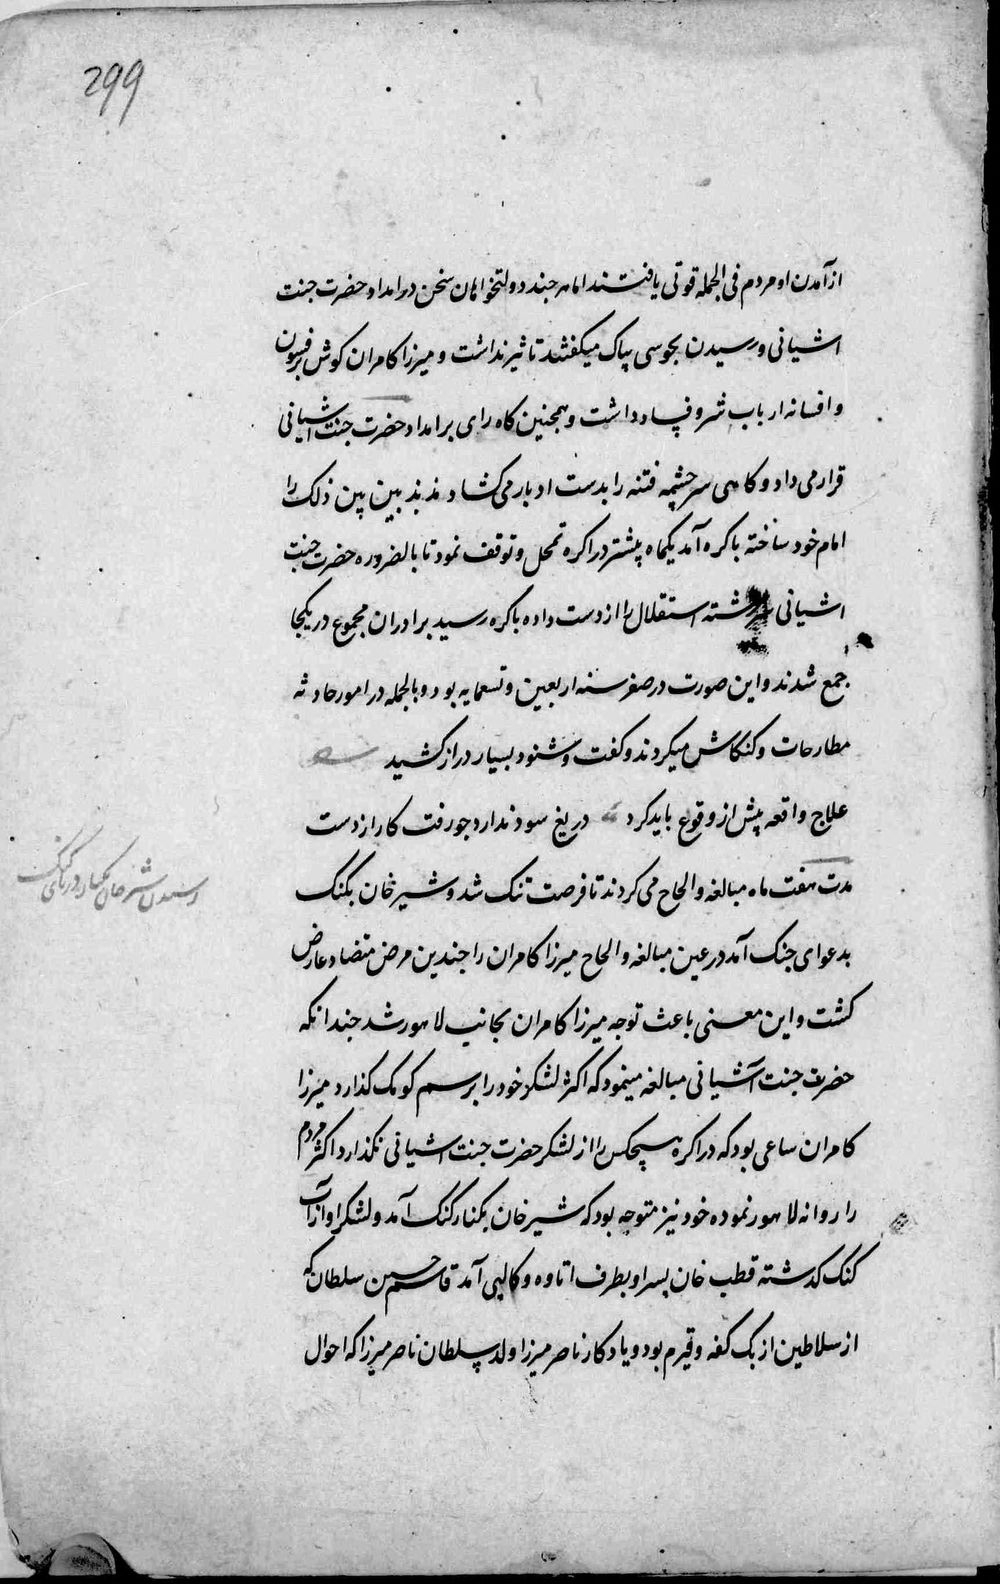 299
از آمدن او مردم فی الجمله قوتی یافتند اما هر چند دولتخواهان سخن در امداد حضرت جنت
اشیانی و رسیدن بجوسی پیاک میکفتند تاثیر نداشت و میرزا کامران کوش بر فسون
و افسانه ارباب شر و فساد داشت و همچنین کاه رای بر امداد حضرت جنت اشیانی
قرار می داد و کاهی سر چشمه فتنه را بدست ادبار می کشاد مذبذبین بین ذلک را
امام خود ساخته باکره آمد یکماه پیشتر در اکره تمحل و توقف نمود تا بالضروره حضرت جنت
اشیانی سررشته استقلال را از دست داده باکره رسید برادران مجموع در یکجا
جمع شدند و این صورت در صفر سنه اربعین و تسعمایه بود و بالجمله در امور حادثه
مطارحات و کنکاش میکردند و کفت و شنود بسیار دراز کشید
علاج واقعه پیش از وقوع باید کرد دریغ سود ندارد جو رفت کار از دست
مدت هفت ماه مبالغه و الحاح می کردند تا فرصت تنک شد و شیر خان بکنک
بدعوای جنک آمد در عین مبالغه و الحاح میرزا کامران را جندین مرض متضاد عارض
کشت و این معنی باعث توجه میرزا کامران بجانب لاهور شد جندانکه
حضرت جنت آشیانی مبالغه مینمود که اکثر لشکر خود را برسم کومک کذارد میرزا
کامران ساعی بود که در اکره هیچکس را از لشکر حضرت جنت اشیانی نکذارد اکثر مردم
را روانه لاهور نموده خود نیز متوجه بود که شیر خان بکنار کنک آمد و لشکر او از آب
کنک کدشته قطب خان بسر او بطرف اتاوه و کالپی آمد قاسم حسین سلطان که
از سلاطین ازبک کفه و قیرم بود و یادکار ناصر میرزا ولد سلطان ناصر میرزا که احوال
رسیدن شیر خان بکنار دریای کنک